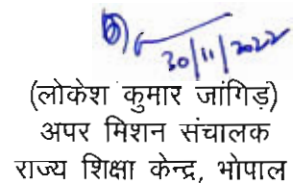 30/11/2022
(लोकेश कुमार जांगिड़)
अपर मिशन संचालक
राज्य शिक्षा केन्द्र, भोपाल